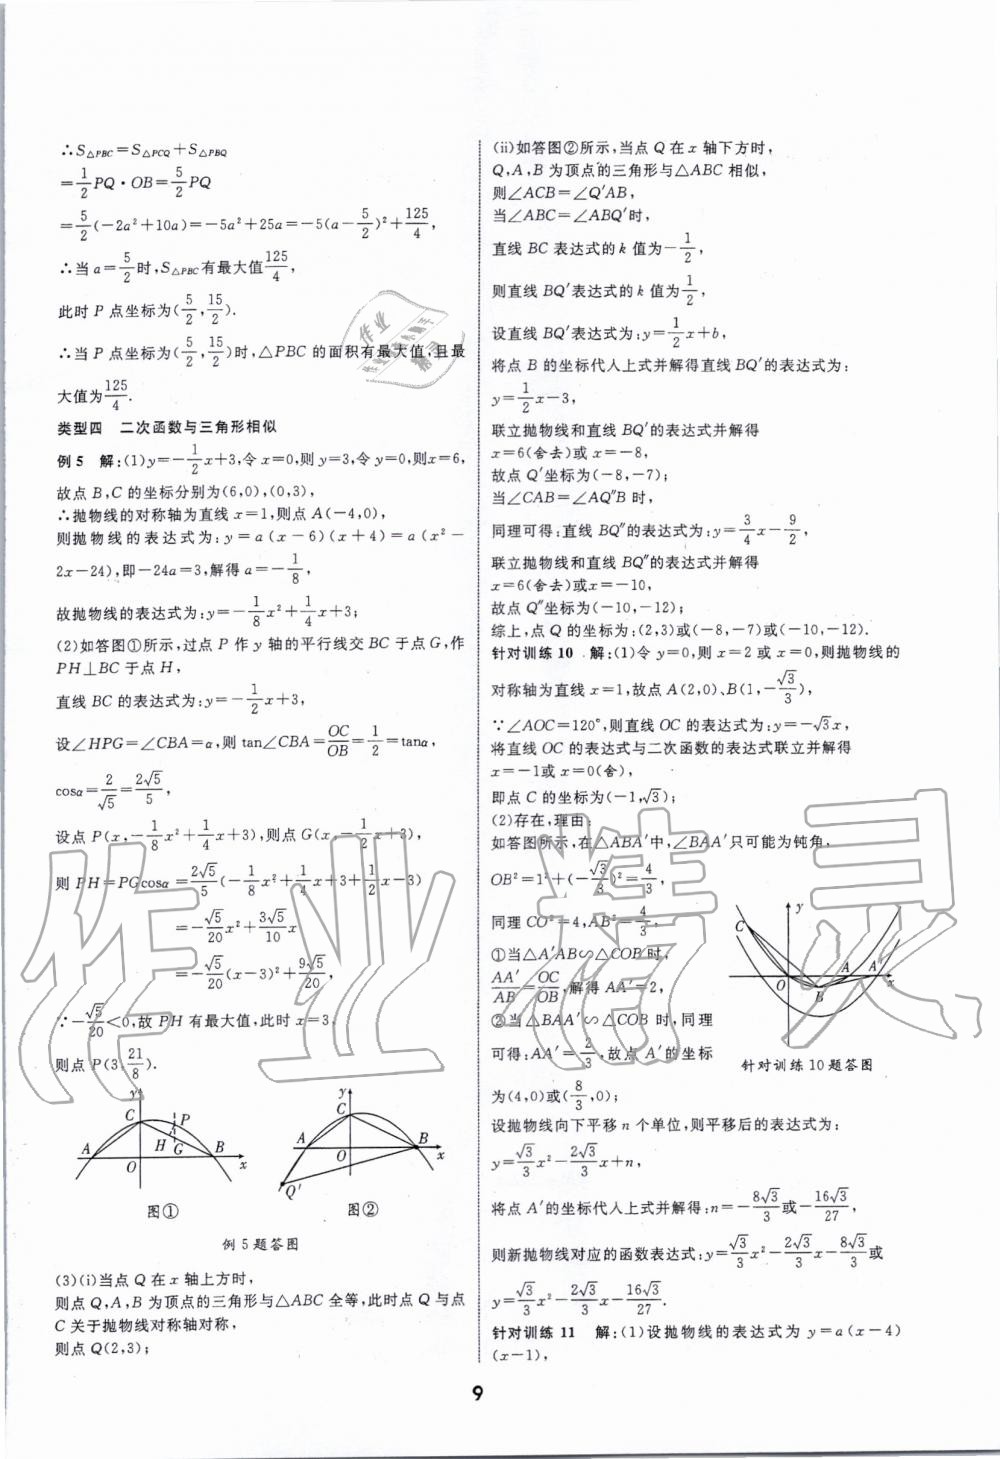 ∴S△PBC=S△PCQ+S△PBQ
=1/2PQ·OB=5/2PQ
=5/2(-2a²+10a)=-5a²+25a=-5(a-5/2)²+125/4,
∴当a=5/2时,S△PBC有最大值125/4,
此时P点坐标为(5/2,15/2).
∴当P点坐标为(5/2,15/2)时,△PBC的面积有最大值,且最
大值为125/4.
类型四 二次函数与三角形相似
例5 解:(1)y=-1/2x+3,令x=0,则y=3,令y=0,则x=6,
故点B,C的坐标分别为(6,0),(0,3),
∴抛物线的对称轴为直线x=1,则点A(-4,0),
则抛物线的表达式为:y=a(x-6)(x+4)=a(x²-
2x-24),即-24a=3,解得a=-1/8,
故抛物线的表达式为:y=-1/8x²+1/4x+3;
(2)如答图①所示,过点P作y轴的平行线交BC于点G,作
PH⊥BC于点H,
直线BC的表达式为:y=-1/2x+3,
设∠HPG=∠CBA=α,则tan∠CBA=OC/OB=1/2=tanα,
cosα=2/√5=2√5/5,
设点P(x,-1/8x²+1/4x+3),则点G(x,-1/2x+3),
则PH=PGcosα=2√5/5(-1/8x²+1/4x+3+1/2x-3)
=-√5/20x²+3√5/10x
=-√5/20(x-3)²+9√5/20
∵-√5/20<0,故PH有最大值,此时x=3,
则点P(3,21/8).
y
C
P
A
H
G
B
O
x
图①
y
C
A
B
O
x
Q′
图②
例5题答图
(3)(i)当点Q在x轴上方时,
则点Q,A,B为顶点的三角形与△ABC全等,此时点Q与点
C关于抛物线对称轴对称,
则点Q(2,3);
(ii)如答图②所示,当点Q在x轴下方时,
Q,A,B为顶点的三角形与△ABC相似,
则∠ACB=∠Q′AB,
当∠ABC=∠ABQ′时,
直线BC表达式的k值为-1/2,
则直线BQ′表达式的k值为1/2,
设直线BQ′表达式为:y=1/2x+b,
将点B的坐标代人上式并解得直线BQ′的表达式为:
y=1/2x-3,
联立抛物线和直线BQ′的表达式并解得
x=6(舍去)或x=-8,
故点Q′坐标为(-8,-7);
当∠CAB=∠AQ″B时,
同理可得:直线BQ″的表达式为:y=3/4x-9/2,
联立抛物线和直线BQ″的表达式并解得
x=6(舍去)或x=-10,
故点Q″坐标为(-10,-12);
综上,点Q的坐标为:(2,3)或(-8,-7)或(-10,-12).
针对训练10 解:(1)令y=0,则x=2或x=0,则抛物线的
对称轴为直线x=1,故点A(2,0)、B(1,-√3/3),
∵∠AOC=120°,则直线OC的表达式为:y=-√3x,
将直线OC的表达式与二次函数的表达式联立并解得
x=-1或x=0(舍),
即点C的坐标为(-1,√3);
(2)存在,理由:
如答图所示,在△ABA′中,∠BAA′只可能为钝角,
OB²=1²+(-√3/3)²=4/3,
同理CO²=4,AB²=4/3,
①当△A′AB∽△COB时,
AA′/AB=OC/OB,解得AA′=2,
②当△BAA′∽△COB时,同理
可得:AA′=2/3,故点A′的坐标
为(4,0)或(8/3,0);
y
C
O
A
A′
B
x
针对训练10题答图
设抛物线向下平移n个单位,则平移后的表达式为:
y=√3/3x²-2√3/3x+n,
将点A′的坐标代人上式并解得:n=-8√3/3或-16√3/27,
则新抛物线对应的函数表达式:y=√3/3x²-2√3/3x-8√3/3或
y=√3/3x²-2√3/3x-16√3/27.
针对训练11 解:(1)设抛物线的表达式为y=a(x-4)
(x-1),
9
作业精灵